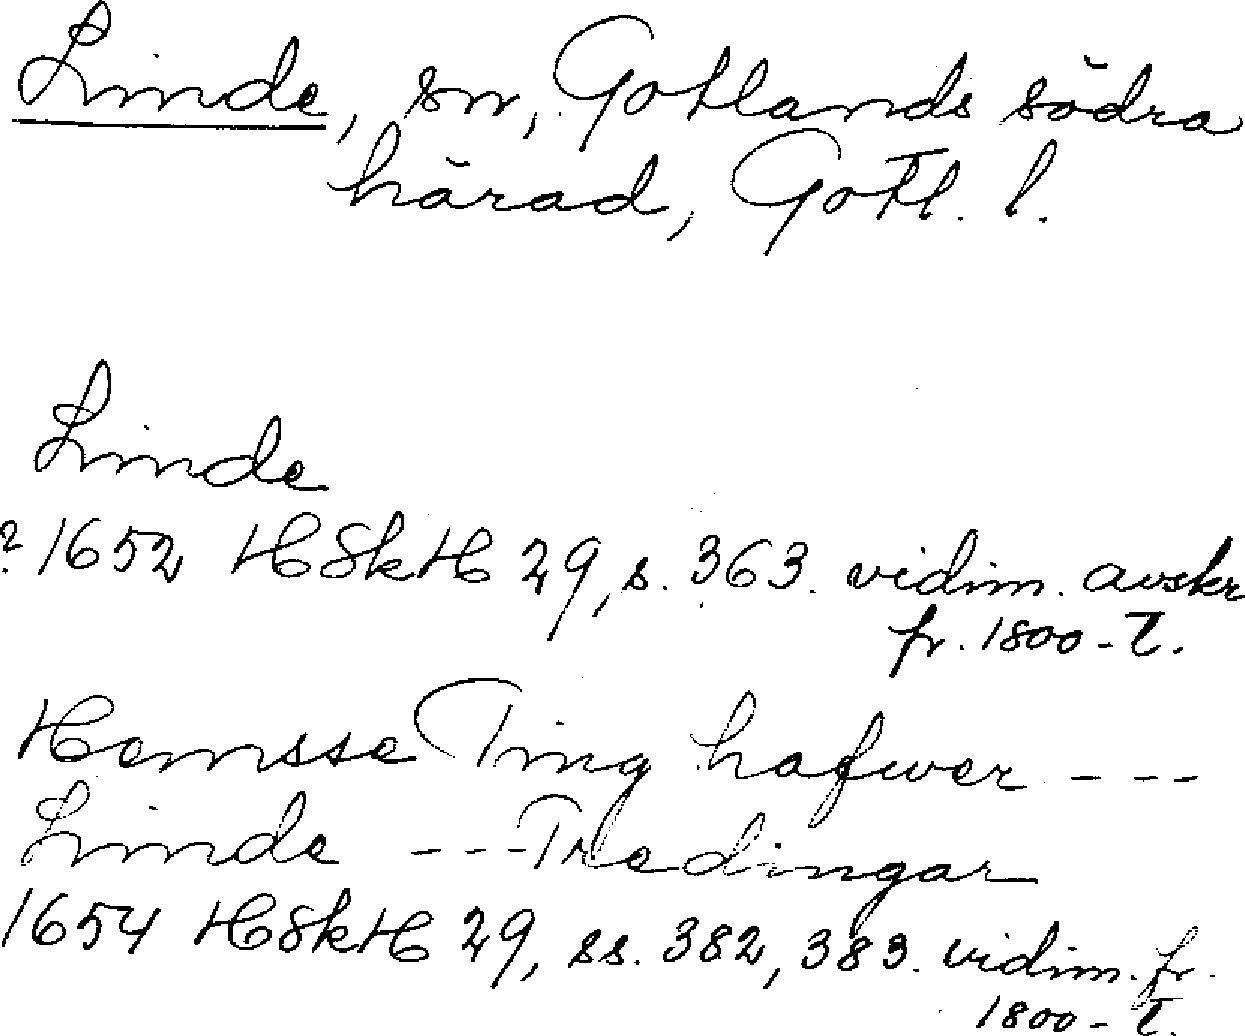 Linde, sn, Gotlands södra
härad, Gotl. l.
Linde
? 1652 HSkH 29, s. 363. vidim. avskr
fr. 1800-t.
Hemsse Ting hafwer ---
Linde --- Tredingar
1654 HSkH 29, ss. 382, 383. vidim. fr.
1800-t.